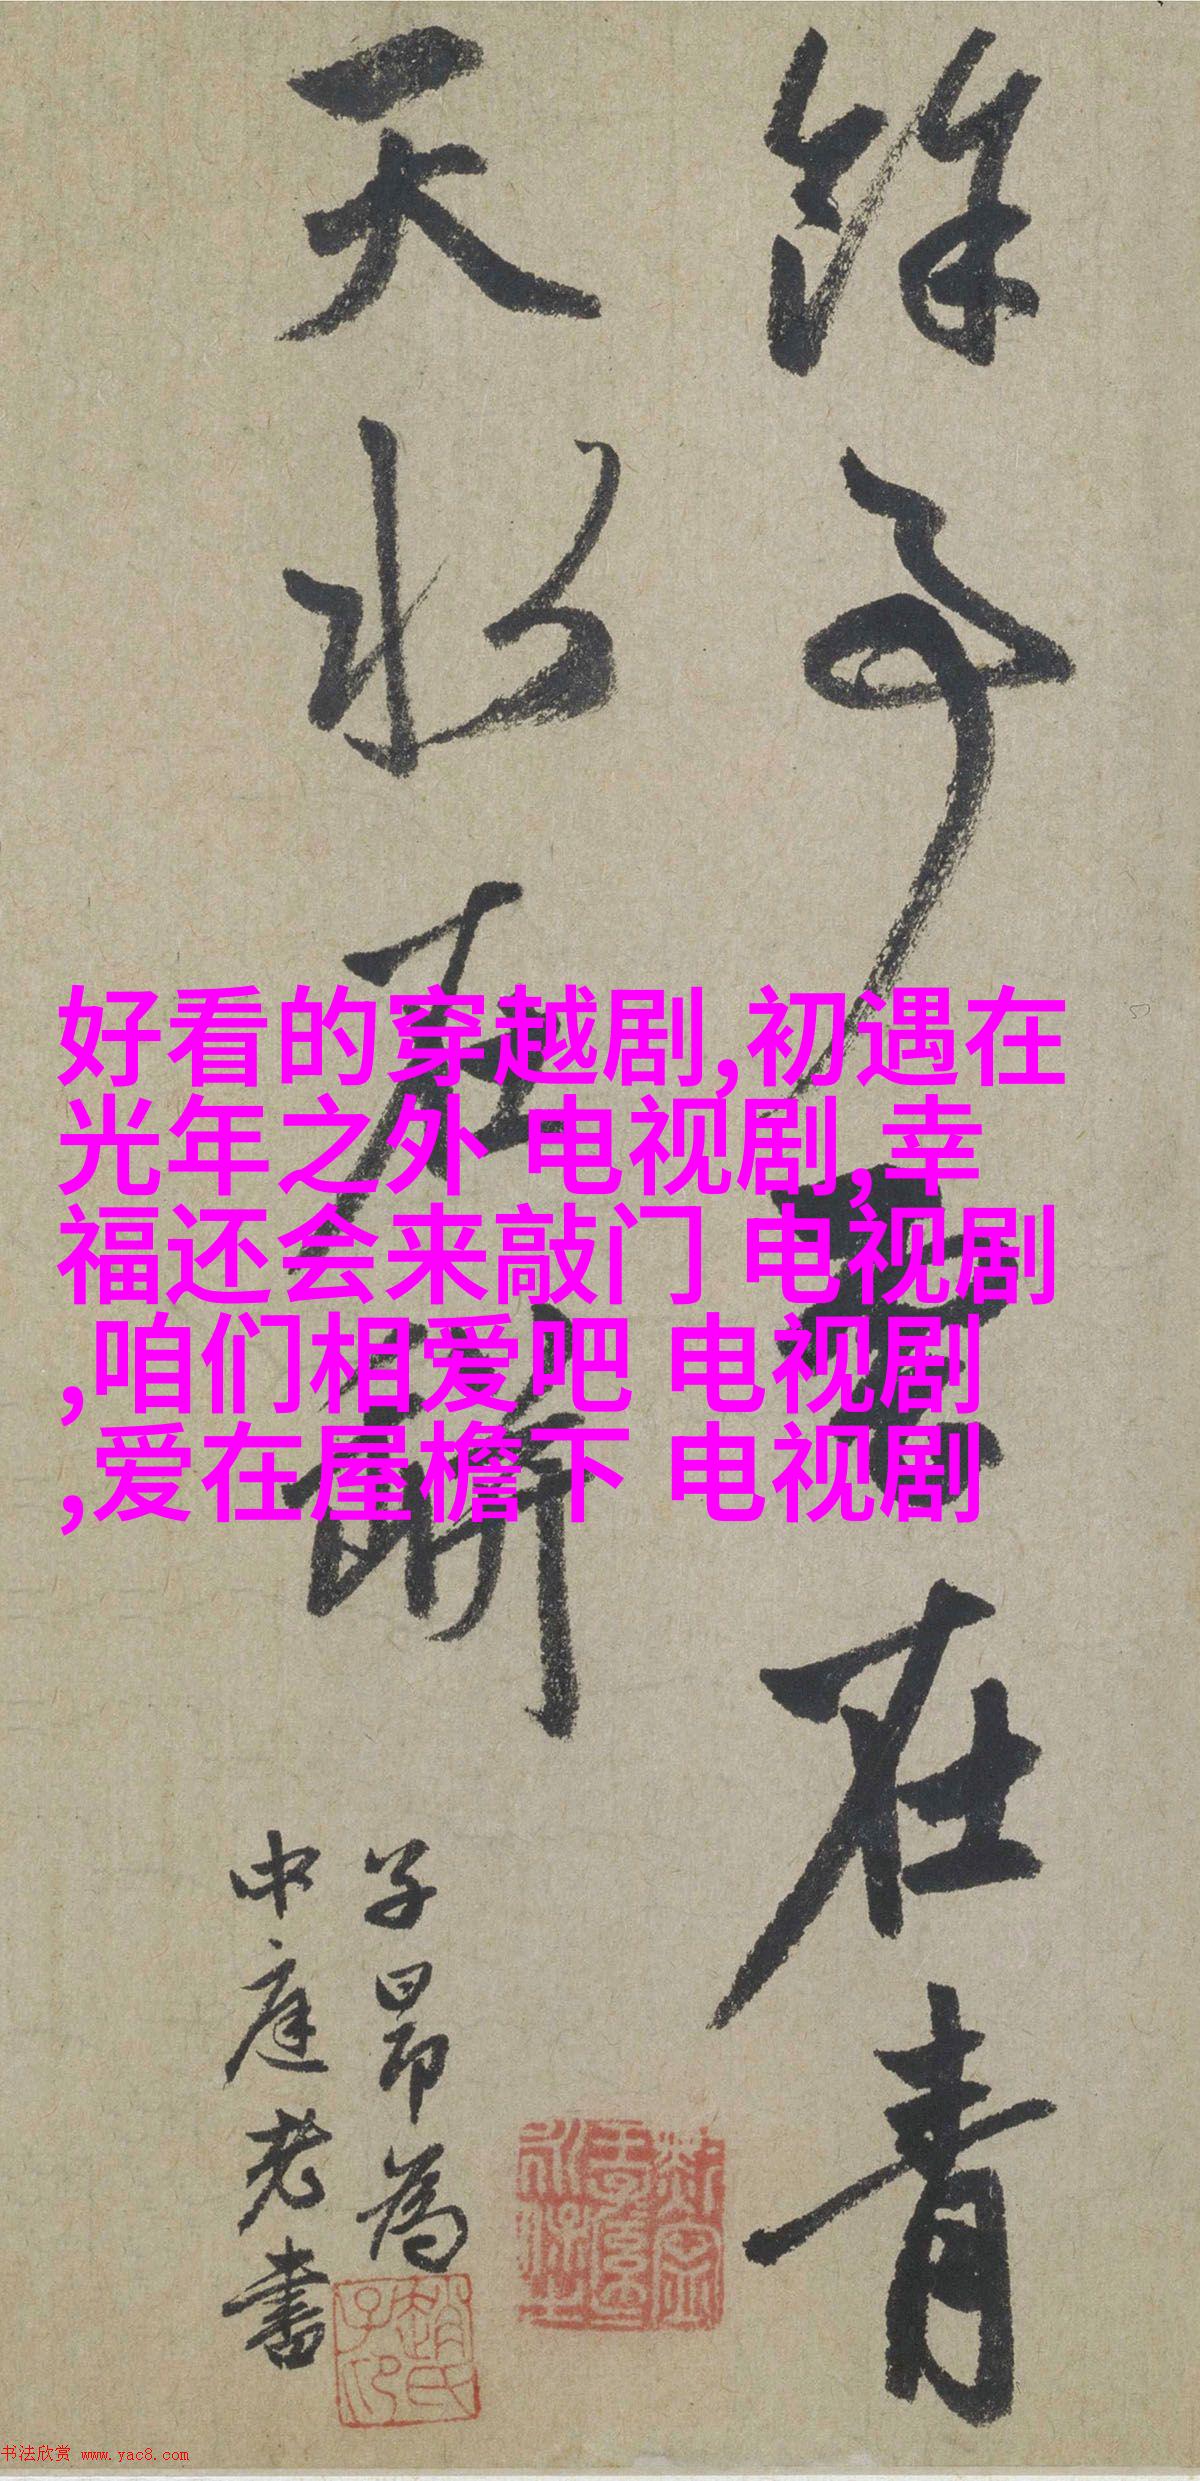 餘事雲在青
天水在瓶
子昂為
中庭老書
好看的穿越剧,初遇在
光年之外 电视剧,幸
福还会来敲门 电视剧
,咱们相爱吧 电视剧
,爱在屋檐下 电视剧
书法欣赏 www.yac8.com